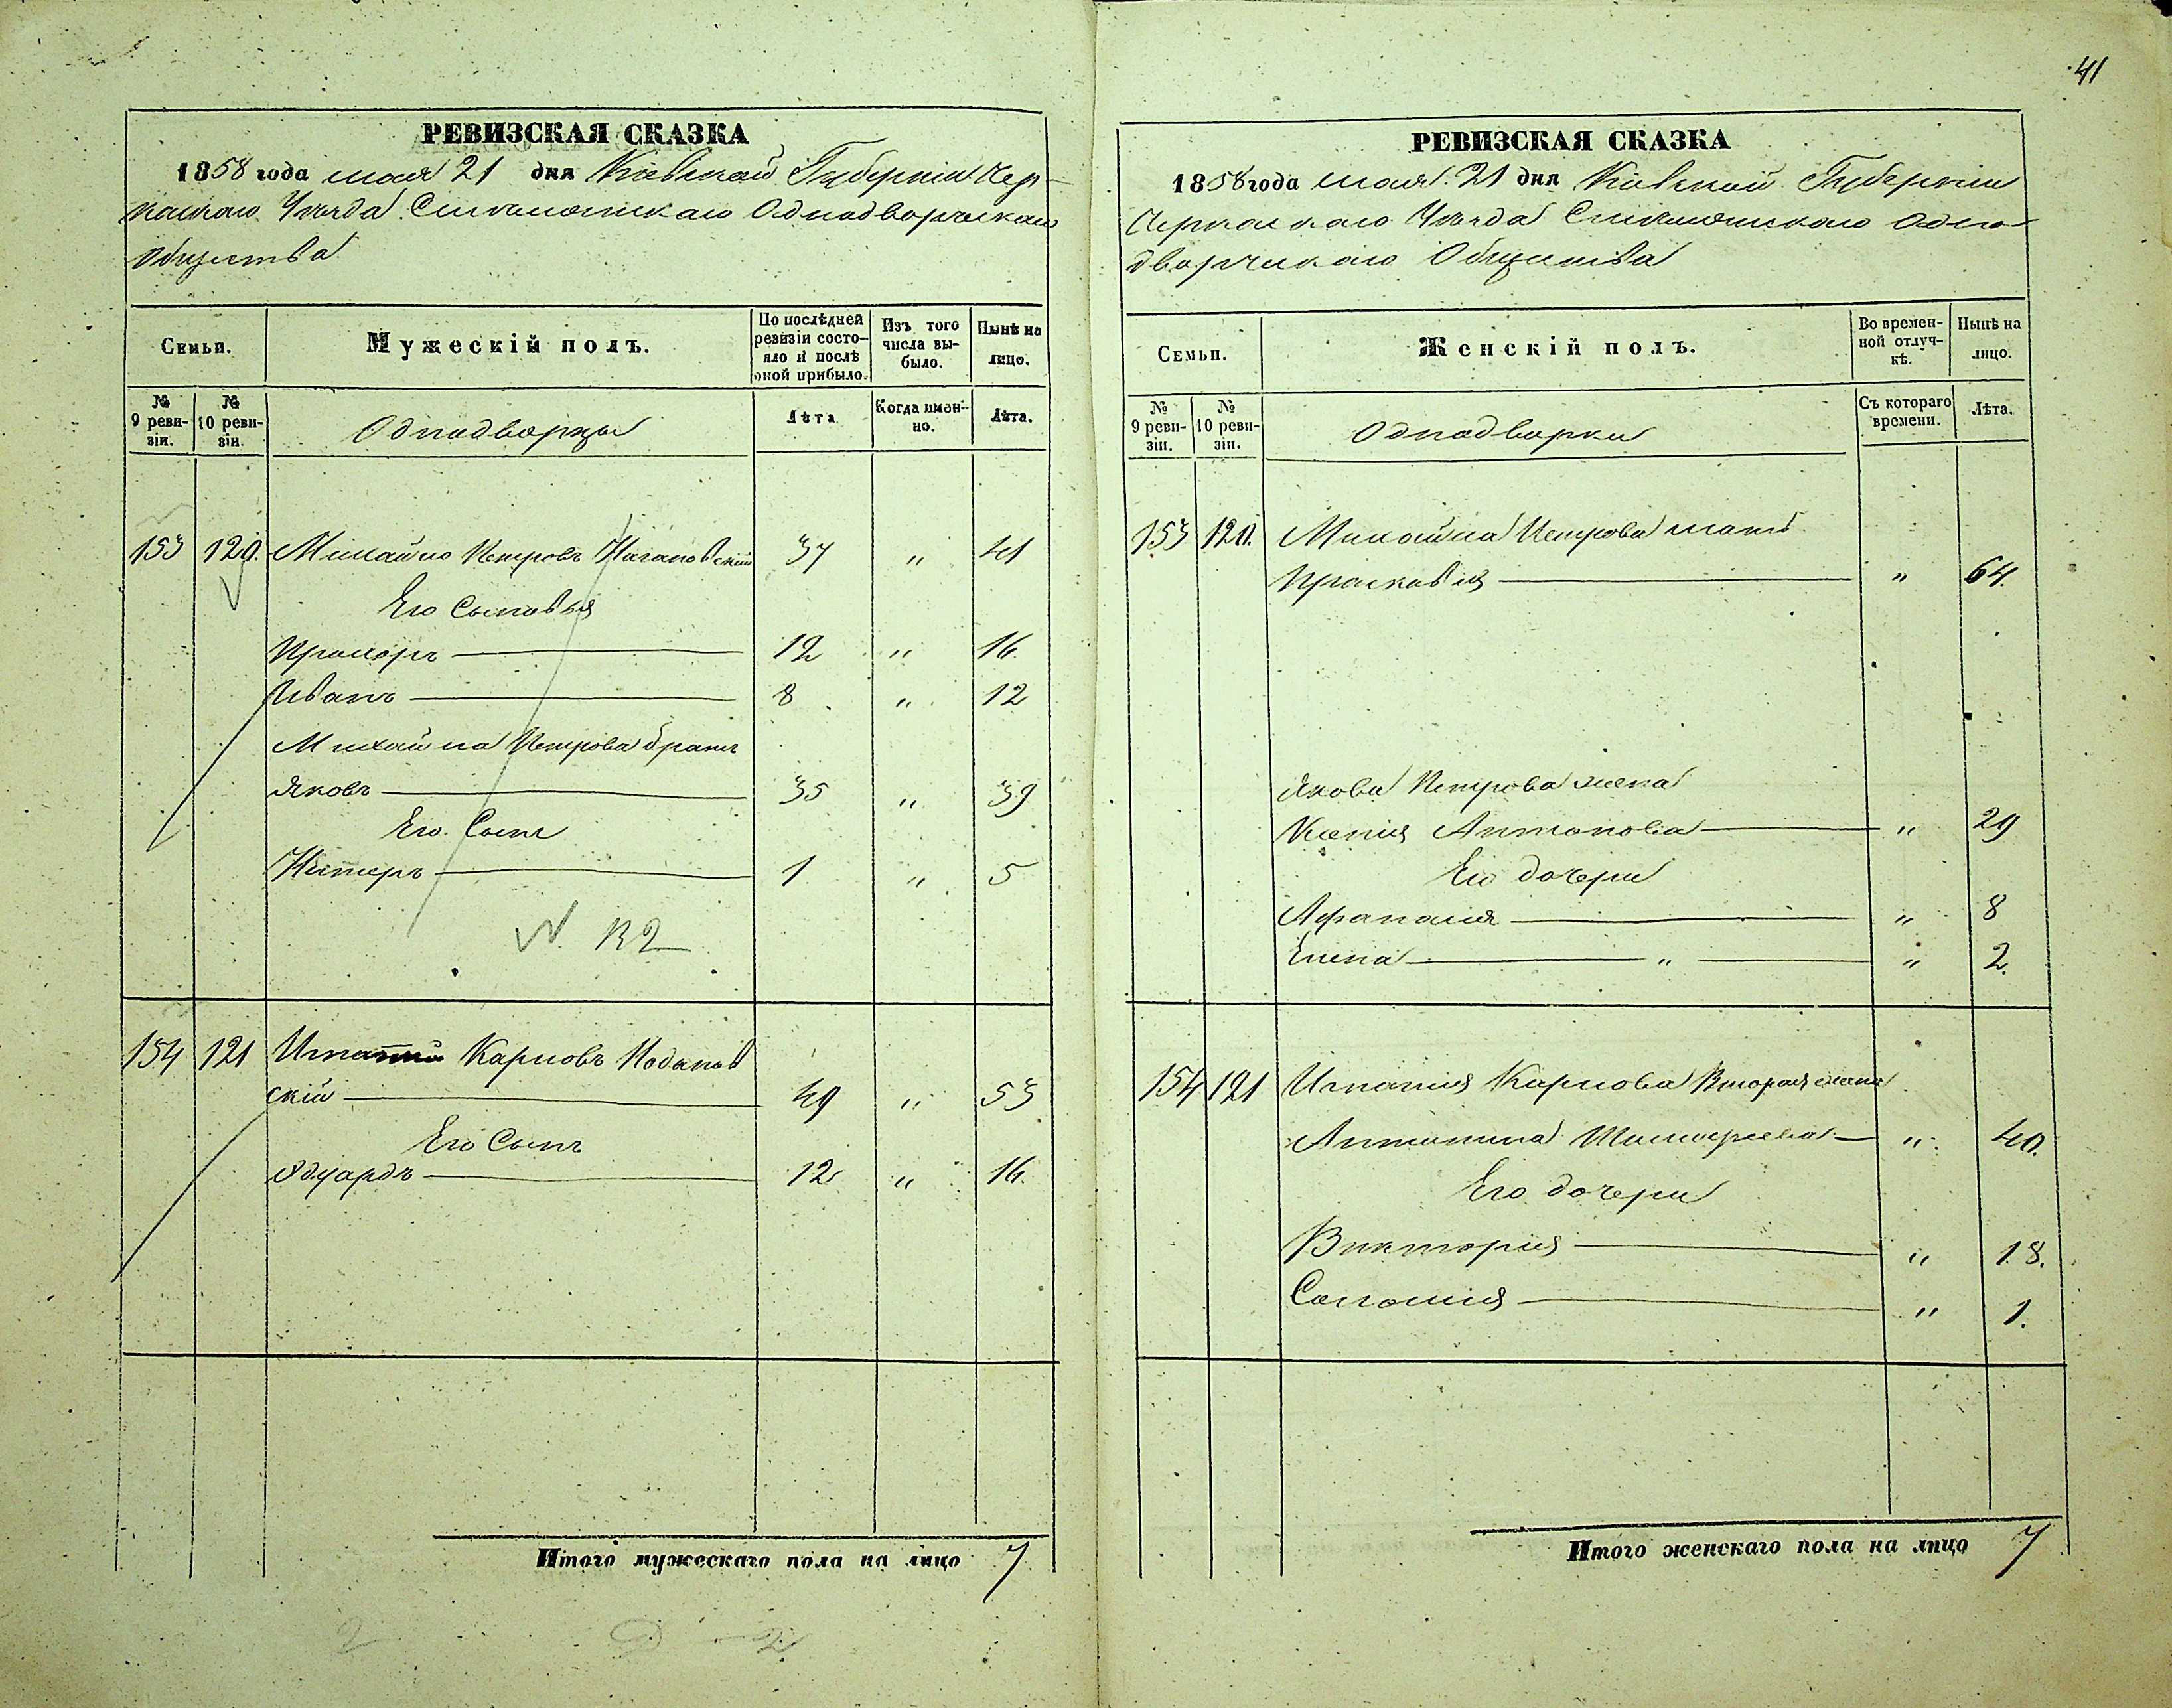 41
РЕВИЗСКАЯ СКАЗКА
1858 года мая 21 дня Кіевской Губерніи Чер-
каскаго Уѣзда Смѣлянскаго Однодворческаго
Общества
Семьи.
Мужескій полъ.
По послѣдней ревизіи состояло и послѣ оной прибыло.
Изъ того числа выбыло.
Нынѣ на лицо.
№ 9 ревизіи.
№ 10 ревизіи.
Однодворцы
Лѣта
Когда именно.
Лѣта.
153 120. Михайло Петровъ 37 " 41
Его Сыновья
Прохоръ 12 " 16.
Иванъ 8 " 12
Михайла Петрова братъ
Яковъ 35 " 39
Его Сынъ
1 " 5
N. 132
154 121 Игнатій Карповъ
скій 49 " 53
Его Сынъ
Эдуардъ 12 " 16.
Итого мужескаго пола на лицо 7
РЕВИЗСКАЯ СКАЗКА
1858 года мая 21 дня Кіевской Губерніи
Черкаскаго Уѣзда Смѣлянскаго Одно-
дворческаго Общества
Семьи.
Женскій полъ.
Во временной отлучкѣ.
Нынѣ на лицо.
№ 9 ревизіи.
№ 10 ревизіи.
Однодворки
Съ котораго времени.
Лѣта.
153 120. Михайла Петрова мать
Прасковія " 64.
Якова Петрова жена
Ксенія Антонова " 29
Его дочери
Афанасія " 8
Елена " " 2.
154 121 Игнатія Карпова Вторая жена
Антонина " 40.
Его дочери
Викторія " 18.
Саломія " 1.
Итого женскаго пола на лицо 7